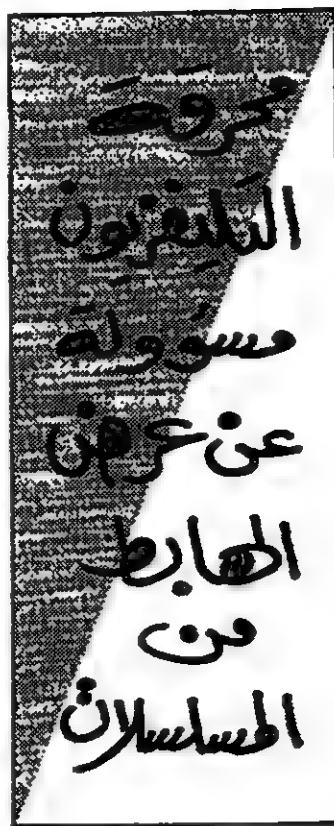 محرقة
التليفزيون
مسؤولة
عن عرض
الهابط
من
المسلسلات